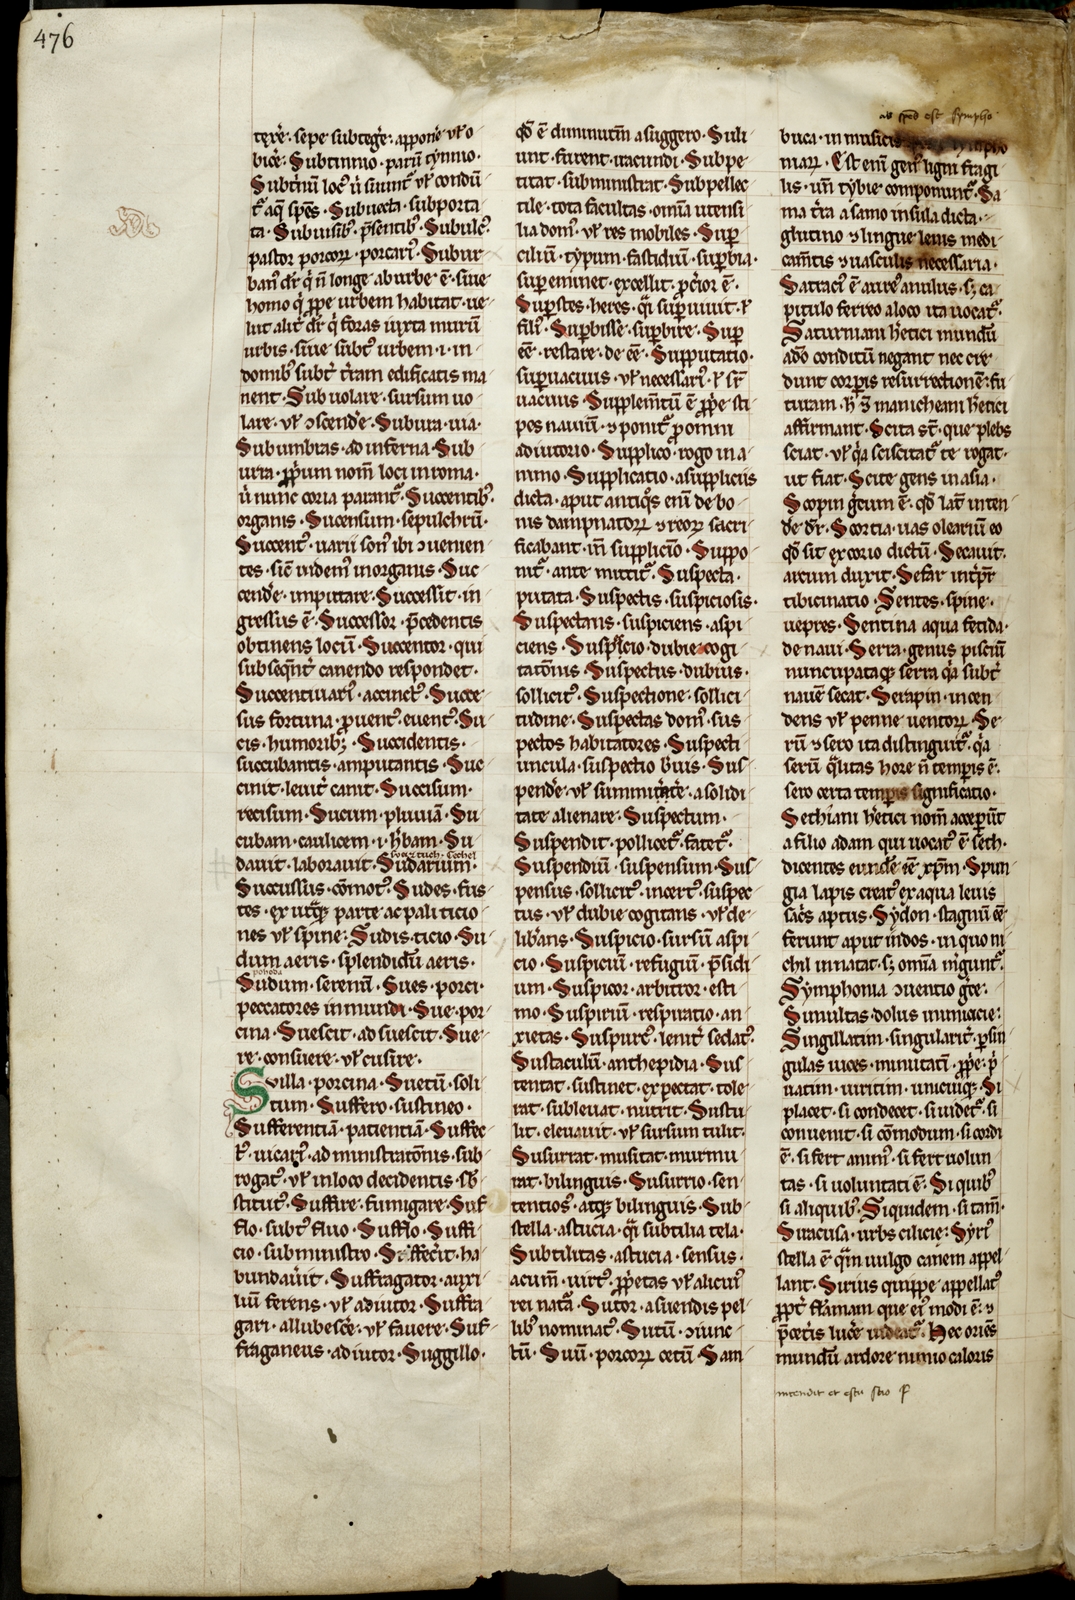 476
ab sped est sympho
texe͛· sepe subtege͛· appone͛ vł o
bice͛· Subtinnio· parū tynnio·
Subtinū loc᷒ ū sūunt᷒ vł condū
t᷒ aq̄ spēs· Subuecta· supporta
ta· Subuisib᷒ p̄sentib᷒· Subulc᷒
pastor porcoꝝ· porcari᷒· Subur
ban᷒ dr̄ q̇ n̄ longe ab urbe ē· siue
homo q̇ ꝓpe urbem habitat· ue
lut alit᷒ dr̄ q̇ foras iuxta murū
urbis· siue subt᷒ urbem· i· in
domib᷒ subt᷒ t͛ram edificatis ma
nent· Sub uolare· sursum uo
lare· vł ɔscende͛· Subura· uia·
Subumbras· ad inferna· Sub
urra· ꝓpium nom̄ loci in roma·
ū nunc coria parant᷒· Succentib᷒
organis· Sucensum· sepulchrū·
Succent᷒ uarii son᷒ ibi ɔuenien
tes· sic̄ uidem᷒ in organis· Suc
cende͛· imputare· Successit· in
gressus ē· Successor· p̄cedentis
obtinens locū· Succentor· qui
subseq̄nt᷒ canendo respondet·
Succentiuari᷒· accinct᷒· Succe
sus fortuna· ꝓuent᷒· euent᷒· Su
cis· humoribꝫ· Succidentis·
succubantis· amputantis· Suc
cinit· leuit᷒ canit· Succisum·
recisum· Sucum· pluuiā· Su
cubam· caulicem· i· h͛bam· Su
dauit· laborauit· Sudarium·
Succussus· cōmot᷒· Sudes· fus
tes· ex utq̄ꝫ parte ac pali ticio
nes vł spine· Sudis· ticio· Su
dum aeris· splendidū aeris·
pohoda
Sudum· serenū· Sues· porci·
peccatores inmundi· Sue· por
cina· Suescit· ad suescit· Sue
re· consuere· vł cusire·
Suilla· porcina· Suetū· soli
tum· Suffero· sustineo·
Sufferentiā· patientiā· Suffec
t᷒· uicari᷒· administratōnis· sub
rogat᷒· vł in loco decidentis· sb̄
stitut᷒· Suffire· fumigare· Suf
flo· subt᷒ fluo· Sufflo· Suffi
cio· subministro· Suffecit· ha
bundauit· Suffragator· auxi
liū ferens· vł adiutor· Suffra
gari· allubesce͛· vł fauere· Suf
fraganeus· adiutor· Suggillo·
qd̄ ē diminutm̄ a suggero· Suli
unt· furent· iracundi· Subpe
titat· subministrat· Subpellec
tile· tota facultas· omīa utensi
lia dom᷒· vł res mobiles· Sup̱
cilium· typum· fastidiū· sup̱bia·
sup̱eminet· excellit· p̄cior ē·
Sup̱stes· heres· q̄i sup̱uiuit· ł
fili᷒· Sup̱bisse· sup̱bire· Sup̱
eē· restare· de eē· Supputatio·
sup̱uacuus· vł necessari᷒· ł sr̄
uacuus· Supplemtū ē ꝓpe͛ sti
pes nauiū· ɔponit᷒ ꝓ omni
adiutorio· Supplico· rogo in a
nimo· Supplicatio· a suppliciis
dicta· aput antiq̊s eni᷒ de bo
nis dampnatoꝝ ɔ reoꝝ sacri
ficabant· in̄ supplicio· Suppo
nit᷒· ante mittit᷒· Suspecta·
putata· Suspectis· suspiciosis·
Suspectans· suspiciens· aspi
ciens· Suspicio· dubie cogi
tatōnis· Suspectus· dubius·
sollicit᷒· Suspectione· sollici
tudine· Suspectas dom᷒· sus
pectos habitatores· Suspecti
uncula· suspectio b͛uis· Sus
pende͛· vł summitate͛· a solidi
tate alienare· Suspectum·
Suspendit· pollicet᷒· fatet᷒·
Suspendiū· suspensum· Sus
pensus· sollicit᷒· incert᷒· suspec
tus· vł dubie cogitans· vł de
lib͛ans· Suspicio· sursū aspi
cio· Suspiciū· refugiū· p̄sidi
um· Suspicor· arbitror· esti
mo· Suspiriū· respiratio· an
xietas· Suspure͛· lenit᷒ sedat᷒·
Sustaculū· anthepidia· Sus
tentat· sustinet· expectat· tole
rat· subleuat· nutrit· Sustu
lit· eleuauit· vł sursum tulit·
Susurrat· musitat· murmu
rat· bilinguis· Susurrio· sen
tentios᷒· atq̄ꝫ bilinguis· Sub
stella· astucia· q̄i subtilia tela·
Subtilitas· astucia· sensus·
acum̄· uirt᷒· ꝓpetas vł alicui᷒
rei natā· Sutor· a suendis pel
lib᷒ nominat᷒· Sutū· ɔiunc
tū· Suū· porcoꝝ cetū· Sam
buca· in musicis
niaꝝ· Est enī gen᷒ ligni fragi
lis· uñ tybie componunt᷒· Sa
ma t͛ra a samo insula dicta·
glutino ɔ lingue lenis medi
camtis ɔ uasculis necessaria·
Satraci᷒ ē aure᷒ anulus· sꝫ ca
pitulo ferreo a loco ita uocat᷒·
Saturniani h͛etici mundū
a dō conditū negant nec cre
dunt corp̱is resurrectionē· fu
turam· h᷒ ɔ manicheani h͛etici
affirmant· Scita st̄· que plebs
sciat· vł q̄a sciscitat᷒ te rogat·
ut fiat· Scite gens in asia·
Scopin g͛cum ē· qd̄ lat᷒ inten
de͛ dr̄· Scortia· uas olearium eo
qd̄ sit ex corio dictū· Secauit·
arcum duxit· Sefar int͛pr̄
tibicinatio· Sentes· spine·
uepres· Sentina aqua fetida·
de naui· Serra· genus pisciū
nuncupataq̄ꝫ serra q̄a subt᷒
nauē secat· Serapin· incen
dens vł penne uentoꝝ· Se
rū ɔ sero ita distinguit᷒· q̄a
serū q̄litas hore n̄ temp̱is ē·
sero certa temp̱is significatio·
Sethiani h͛etici nom̄ accep̱ūt
a filio adam qui uocat᷒ ē seth·
dicentes eundē eē xp̄m· Spun
gia lapis creat᷒ ex aqua leuis
sac͛s aptus· Sydon· stagnū eē
ferunt aput indos· in quo ni
chil innatat· sꝫ omīa m͛gunt᷒·
Symphonia ɔuentio gre͛·
Simultas· dolus inimicicie·
Singillatim· singularit᷒· p̱ sin
gulas uices· minutatī· ꝓpe͛· p͛
uatim· uiritim· unicuiq̄ꝫ· Si
placet· si condecet· si uidet᷒· si
conuenit· si cōmodum· si cordi
ē· si fert anim᷒· si fert uolun
tas· si uoluntati ē· Si quib᷒
si aliquib᷒· Siquidem· si tam̄·
Siracusa· urbs cilicie· Syri᷒
stella ē q̄m uulgo canem appel
lant· Sirius quippe appellat᷒
ꝓpt᷒ flāmam que ei᷒ modi ē· ɔ
p̄cet͛is luce͛ uideat᷒· Hec oriēs
mundū ardore nimio caloris
incendit et estu suo